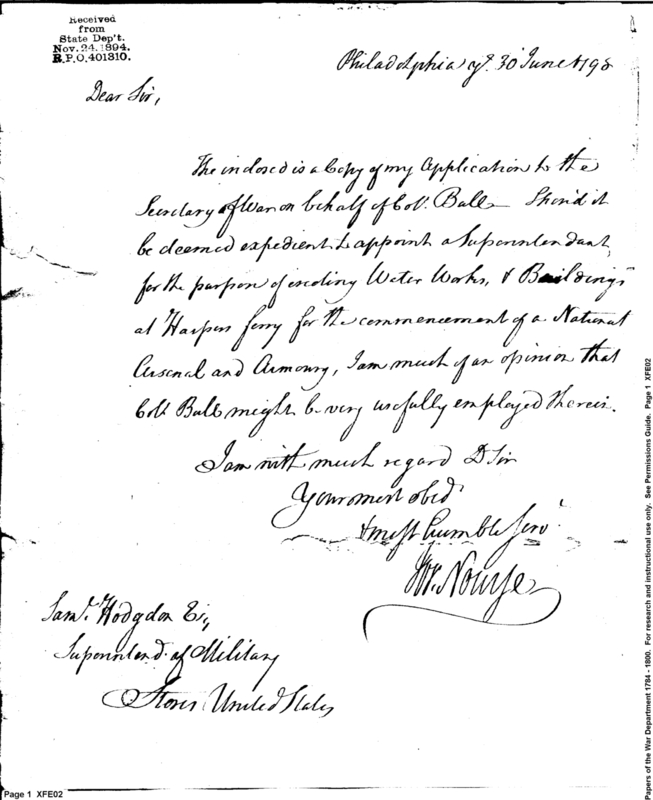 Received
from
State Dep't.
Nov. 24. 1894.
R.P.O. 401310.
Philadelphia ye. 30 June 1798
Dear Sir,
The inclosed is a Copy of my Application to the
Secretary of War on behalf of Col. Ball Should it
be deemed expedient to appoint a Superintendant,
for the purpose of erecting Water Works, & Buildings
at Harpers ferry for the commencement of a National
Arsenal and Armoury, I am much of an opinion that
Colo Ball might be very usefully employed therein.
I am with much regard D Sir
Your most obed.
& most humble Serv.
Nourse
Sam. Hodgdon Esq,
Superintend. of Military
Stores United States
Page 1 XFE02
Papers of the War Department 1784 - 1800. For research and instructional use only. See Permissions Guide. Page 1 XFE02